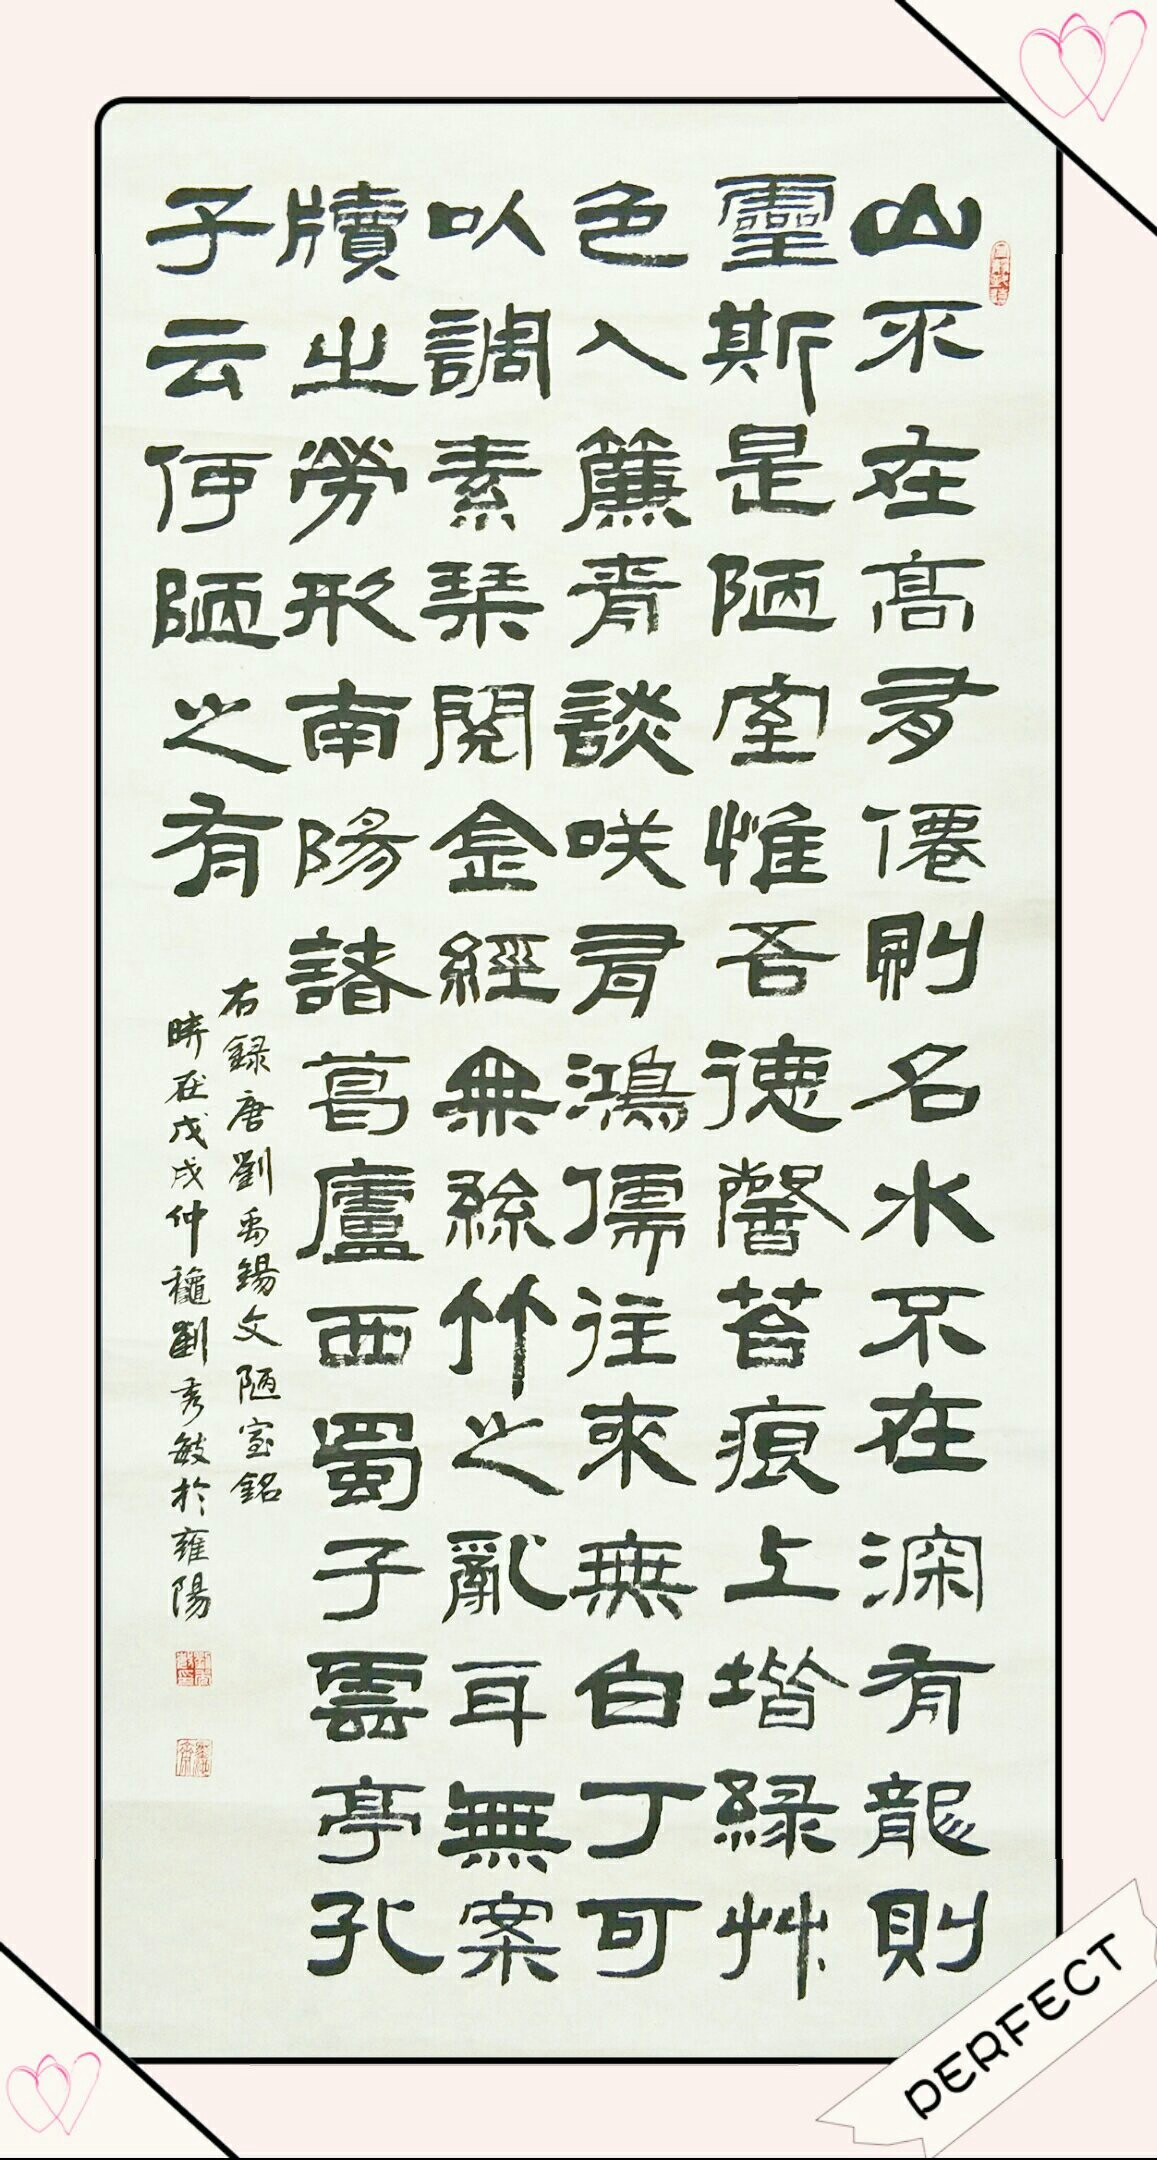 山不在高有僊則名水不在深有龍則
靈斯是陋室惟吾德馨苔痕上堦緑艸
色入簾青談咲有鴻儒往來無白丁可
以調素琹閱金經無絲竹之亂耳無案
牘之勞形南陽諸葛廬西蜀子雲亭孔
子云何陋之有
右録唐劉禹錫文陋室銘
時在戊戌仲龝劉秀敏於雍陽
PERFECT